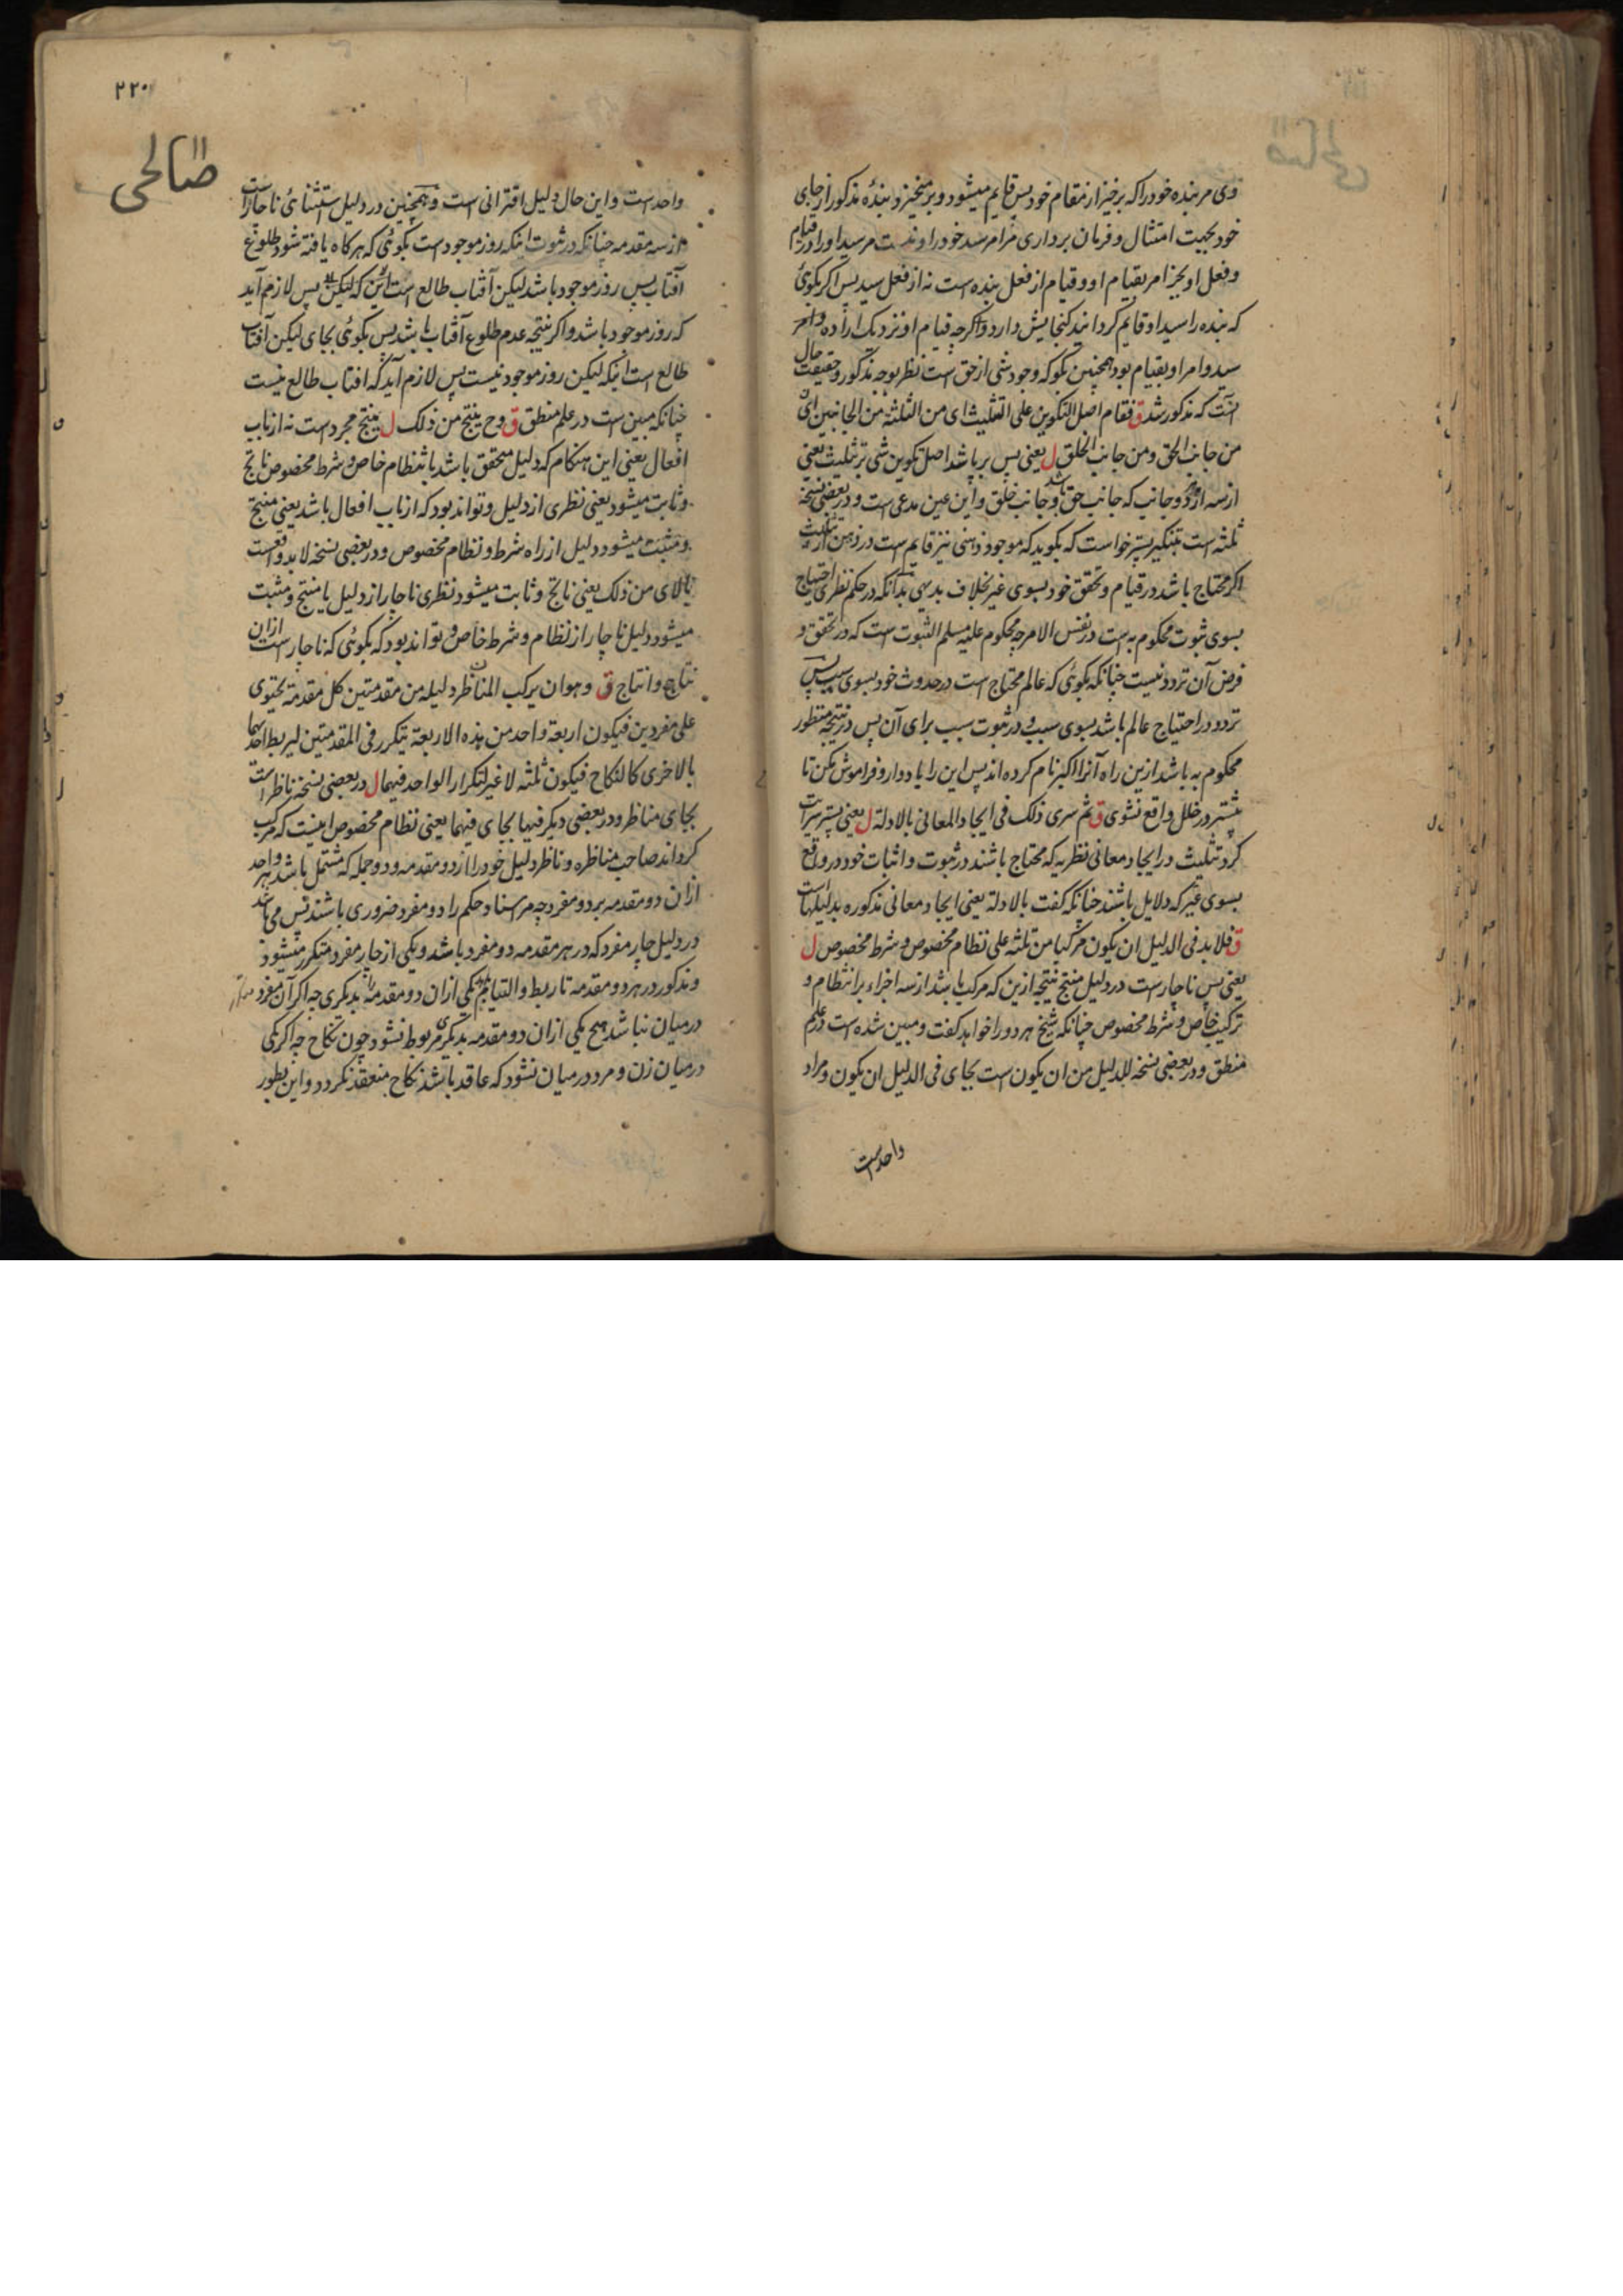 وی مر بنده خود را که برخیز از مقام خود پس قایم میشود و بر میخیزد بندهٔ مذکور از جای
خود بجهت امتثال و فرمان برداری مر امر سید خود را و نیست مر سید او را در قیام
و فعل او بجز امر بقیام او و قیام از فعل بنده است نه از فعل سید پس اکر بکوئی
که بنده را سید او قایم کردانید کنجایش دارد و اکرچه قیام او نزدیک اراده و امر
سید و امر او بقیام بود همچنین بکو که وجود شی از حق است نظر بوجه مذکور و حقیقت حال
آنست که مذکور شد ق فقام اصل التکوین علی التثلیث ای من الثلثة من الجانبین ای
من جانب الحق و من جانب الخلق ل یعنی پس برپا شد اصل تکوین شی بر تثلیث یعنی
از سه از دو جانب که جانب حق باشد و جانب خلق و این عین مدعی است و در بعضی نسخه
ثلثه است بتنکیر پستر خواست که بکوید که موجود ذهنی نیز قایم است در ذهن از تثلیث
اکر محتاج باشد در قیام و تحقق خود بسوی غیر بخلاف بدیهی بدانکه در حکم نظری احتیاج
بسوی ثبوت محکوم به است در نفس الامر چه محکوم علیه مسلم الثبوت است که در تحقق و
فرض آن تردد نیست چنانکه بکوئی که عالم محتاج است در حدوث خود بسوی سبب پس
تردد در احتیاج عالم باشد بسوی سبب و در ثبوت سبب برای آن پس در نتیجه منظور
محکوم به باشد ازین راه آنرا اکبر نام کرده اند پس این را یاد دار و فراموش مکن تا
پیشتر در خلل واقع نشوی ق ثم سری ذلک فی ایجاد المعانی بالادلة ل یعنی پستر سرایت
کرد تثلیث در ایجاد معانی نظریه که محتاج باشند در ثبوت و اثبات خود در واقع
بسوی غیر که دلایل باشند چنانکه کفت بالادلة یعنی ایجاد معانی مذکوره بدلیلهاست
ق فلابد فی الدلیل ان یکون مرکبا من ثلثه علی نظام مخصوص و شرط مخصوص ل
یعنی پس ناچارست در دلیل منتج نتیجه ازین که مرکب باشد از سه اجزاء بر انتظام و
ترکیب خاص و شرط مخصوص چنانکه شیخ هر دو را خواهد کفت و مبین شده است در علم
منطق و در بعضی نسخه للدلیل من ان یکون است بجای فی الدلیل ان یکون و مراد
واحدست
۲۲۰
صالحی
واحدست و این حال دلیل اقترانی است و همچنین در دلیل استثنائی ناچارست
از سه مقدمه چنانکه در ثبوت اینکه روز موجودست بکوئی که هرکاه یافته شود طلوع
آفتاب پس روز موجود باشد لیکن آفتاب طالع است پس لازم آید
که روز موجود باشد و اکر نتیجه عدم طلوع آفتاب باشد پس بکوئی بجای لیکن آفتاب
طالع است اینکه لیکن روز موجود نیست پس لازم آید که افتاب طالع نیست
چنانکه مبین ست در علم منطق ق وح ینتج من ذلک ل ینتج مجردست نه از باب
افعال یعنی این هنکام که دلیل متحقق باشد بانتظام خاص و شرط مخصوص ناتج
و ثابت میشود یعنی نظری از دلیل و تواند بود که از باب افعال باشد یعنی منتج
و مثبت میشود دلیل از راه شرط و نظام مخصوص و در بعضی نسخه لابد واقعست
بالای من ذلک یعنی ناتج و ثابت میشود نظری ناچار از دلیل یا منتج و مثبت
میشود دلیل ناچار از نظام و شرط خاص و تواند بود که بکوئی که ناچار است ازان
نتاج و انتاج ق و هو ان یرکب المناظر دلیله من مقدمتین کل مقدمة یحتوی
علی مفردین فیکون اربعة واحد من هذه الاربعة یتکرر فی المقدمتین لیربط احدهما
بالاخری کالنکاح فیکون ثلثه لا غیر لتکرار الواحد فیهما ل در بعضی نسخه ناظر است
بجای مناظر و در بعضی دیکر فیها بجای فیهما یعنی نظام مخصوص اینست که مرکب
کرداند صاحب مناظره و ناظر دلیل خود را از دو مقدمه و دو جمله که مشتمل باشد هر واحد
ازان دو مقدمه بر دو مفرد چه مر اسناد و حکم را دو مفرد ضروری باشند پس می باشد
در دلیل چار مفرد که در هر مقدمه دو مفرد باشد و یکی از چار مفرد متکرر میشود
و مذکور در هر دو مقدمه تا ربط و التیام یکی ازان دو مقدمه را بدیکری چه اکر آن مفرد
درمیان نباشد هیچ یکی ازان دو مقدمه بدیکری مربوط نشود چون نکاح چه اکر یکی
درمیان زن و مرد درمیان نشود که عاقد باشد نکاح منعقد نکردد و این بطور